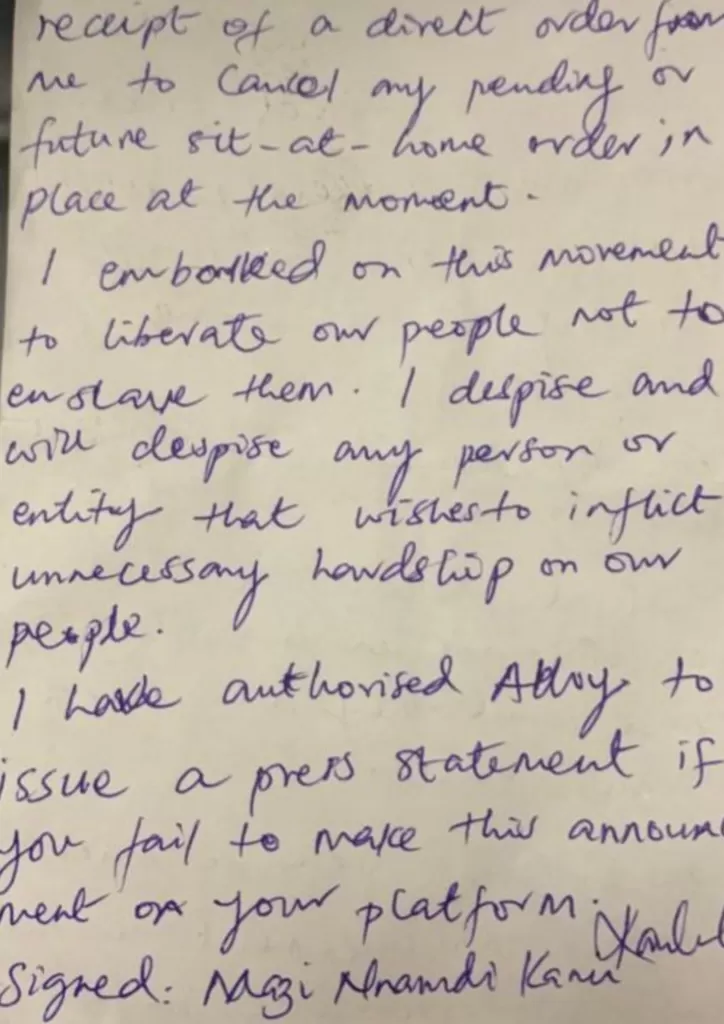 receipt of a direct order from
me to cancel any pending or
future sit-at-home order in
place at the moment.
I embarked on this movement
to liberate our people not to
enslave them. I despise and
will despise any person or
entity that wishes to inflict
unnecessary hardship on our
people.
I have authorised to
issue a press statement if
you fail to make this announce
ment on your platform.
Signed: Mazi Nnamdi Kanu